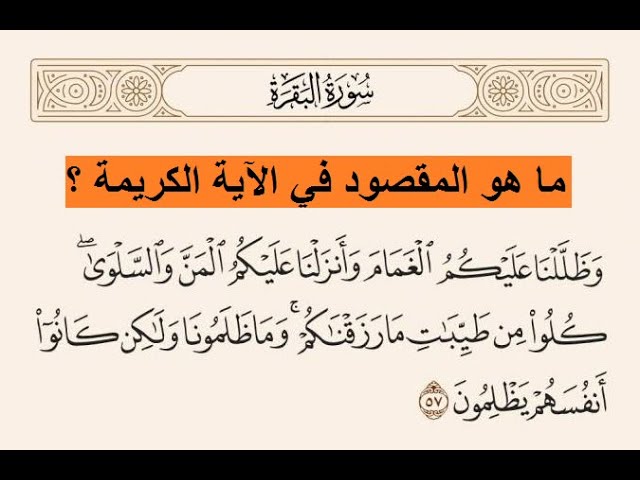 سُورَةُ البَقَرَةِ
ما هو المقصود في الآية الكريمة ؟
وَظَلَّلْنَا عَلَيْكُمُ ٱلْغَمَامَ وَأَنزَلْنَا عَلَيْكُمُ ٱلْمَنَّ وَٱلسَّلْوَىٰۖ
كُلُوا۟ مِن طَيِّبَـٰتِ مَا رَزَقْنَـٰكُمْۚ وَمَا ظَلَمُونَا وَلَـٰكِن كَانُوٓا۟
أَنفُسَهُمْ يَظْلِمُونَ ٥٧